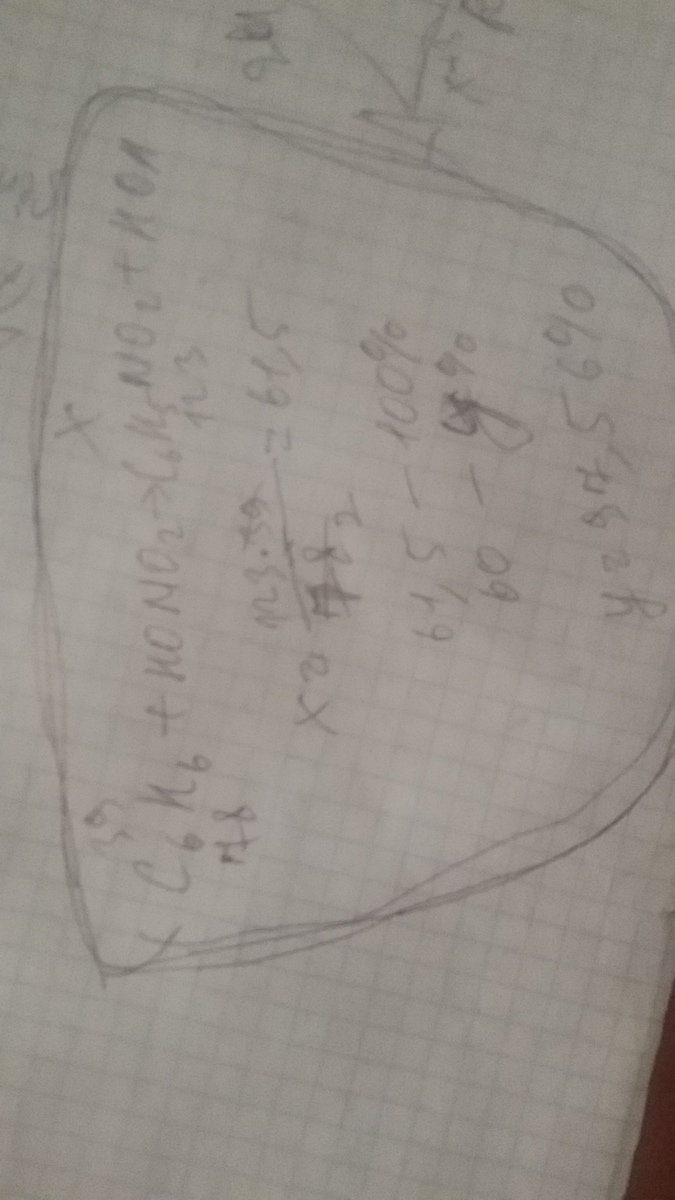 x
39
C6H6 + HONO2 → C6H5NO2 + HOH
78 123
x = 123·39 / 78 2 = 61,5
61,5 – 100%
60 – y%
y = 97,56%